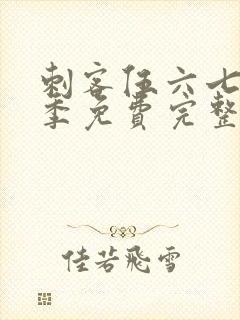 刺客伍六七
季免费完整
佳若飛雪